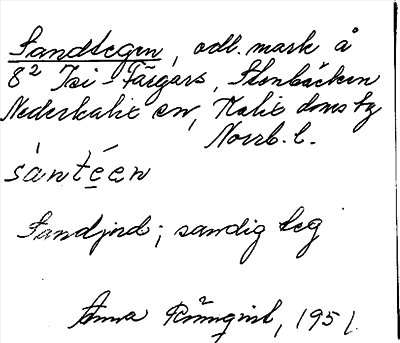 Sandtegen, odl. mark å
8² Isi-Färgars, Stenbäcken
Nederkalix en, Kalix doms by
Norrb. l.
śantéen
Sandjord; sandig teg
Anna Rönnqvist, 1951.